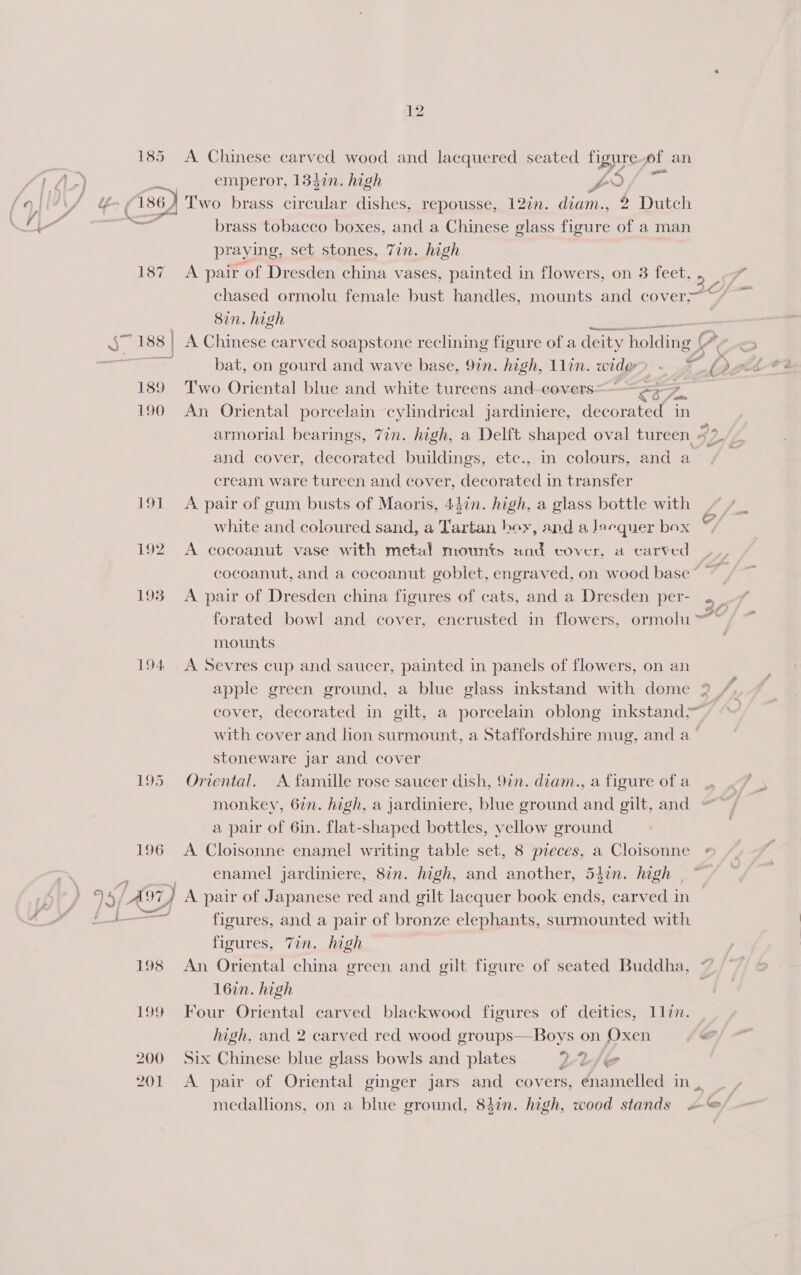 12
185 A Chinese carved wood and lacquered seated figure of an
emperor, 13½in. high
186 Two brass circular dishes, repousse, 12in. diam., 2 Dutch
brass tobacco boxes, and a Chinese glass figure of a man
praying, set stones, 7in. high
187 A pair of Dresden china vases, painted in flowers, on 3 feet,
chased ormolu female bust handles, mounts and cover,
8in. high
188 A Chinese carved soapstone reclining figure of a deity holding
bat, on gourd and wave base, 9in. high, 11in. wide
189 Two Oriental blue and white tureens and covers
190 An Oriental porcelain cylindrical jardiniere, decorated in
armorial bearings, 7in. high, a Delft shaped oval tureen
and cover, decorated buildings, etc., in colours, and a
cream ware tureen and cover, decorated in transfer
191 A pair of gum busts of Maoris, 4½in. high, a glass bottle with
white and coloured sand, a Tartan box, and a lacquer box
192 A cocoanut vase with metal mounts and cover, a carved
cocoanut, and a cocoanut goblet, engraved, on wood base
193 A pair of Dresden china figures of cats, and a Dresden per-
forated bowl and cover, encrusted in flowers, ormolu
mounts
194 A Sevres cup and saucer, painted in panels of flowers, on an
apple green ground, a blue glass inkstand with dome
cover, decorated in gilt, a porcelain oblong inkstand,
with cover and lion surmount, a Staffordshire mug, and a
stoneware jar and cover
195 Oriental. A famille rose saucer dish, 9in. diam., a figure of a
monkey, 6in. high, a jardiniere, blue ground and gilt, and
a pair of 6in. flat-shaped bottles, yellow ground
196 A Cloisonne enamel writing table set, 8 pieces, a Cloisonne
enamel jardiniere, 8in. high, and another, 5½in. high
197 A pair of Japanese red and gilt lacquer book ends, carved in
figures, and a pair of bronze elephants, surmounted with
figures, 7in. high
198 An Oriental china green and gilt figure of seated Buddha,
16in. high
199 Four Oriental carved blackwood figures of deities, 11in.
high, and 2 carved red wood groups—Boys on Oxen
200 Six Chinese blue glass bowls and plates
201 A pair of Oriental ginger jars and covers, enamelled in
medallions, on a blue ground, 8½in. high, wood stands